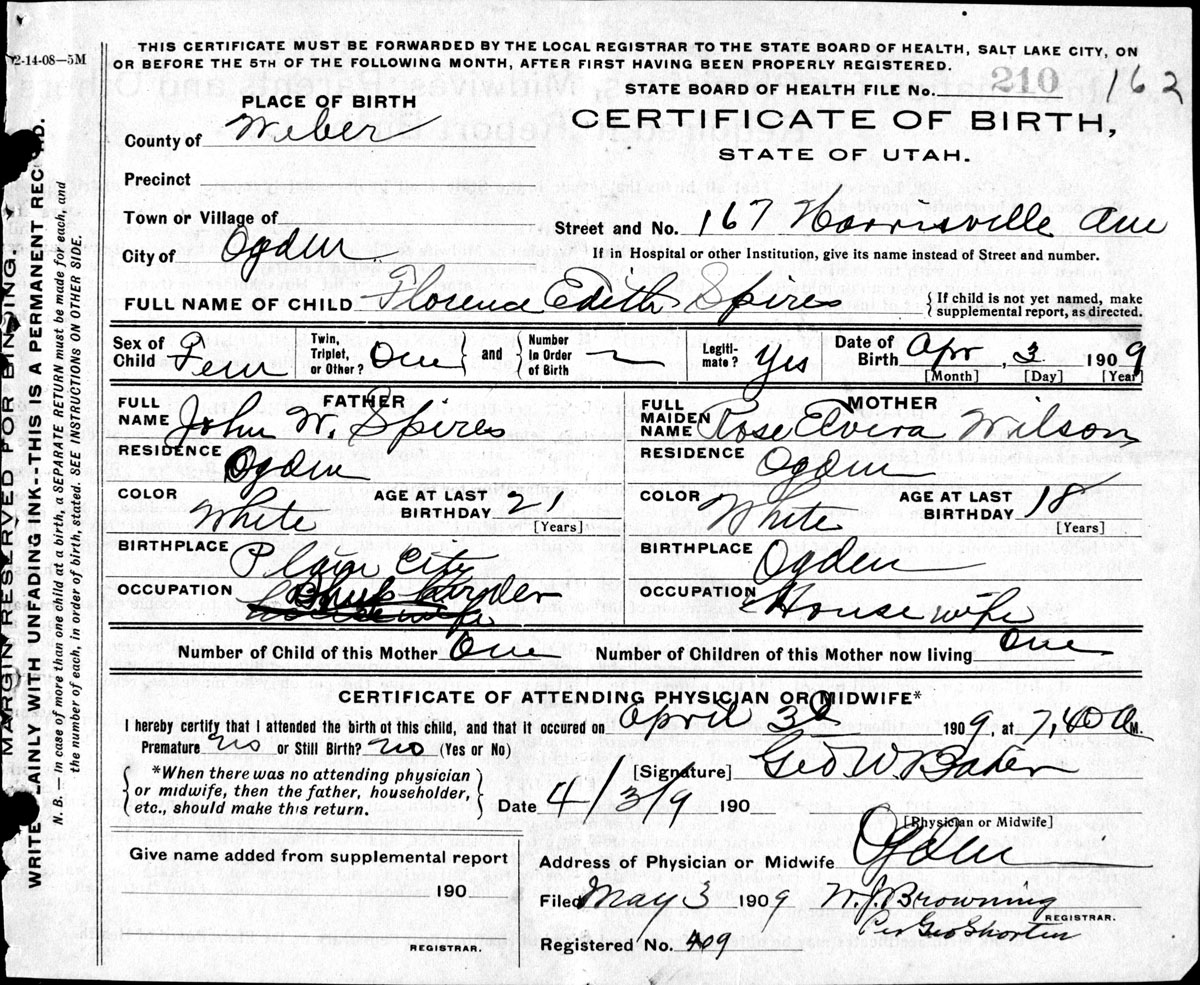 2-14-08—5M
THIS CERTIFICATE MUST BE FORWARDED BY THE LOCAL REGISTRAR TO THE STATE BOARD OF HEALTH, SALT LAKE CITY, ON
OR BEFORE THE 5TH OF THE FOLLOWING MONTH, AFTER FIRST HAVING BEEN PROPERLY REGISTERED.
STATE BOARD OF HEALTH FILE No. 210 162
PLACE OF BIRTH
CERTIFICATE OF BIRTH,
STATE OF UTAH.
County of Weber
Precinct
Town or Village of
Street and No. 167 Harrisville Ave
City of Ogden
If in Hospital or other Institution, give its name instead of Street and number.
FULL NAME OF CHILD Florence Edith Spires
{ If child is not yet named, make
supplemental report, as directed.
Sex of Child Fem
Twin, Triplet, or Other? One } and { Number in Order of Birth
Legiti-mate? Yes
Date of Birth Apr, 3 1909
[Month] [Day] [Year]
FATHER
FULL NAME John W. Spires
RESIDENCE Ogden
COLOR White
AGE AT LAST BIRTHDAY 21
[Years]
BIRTHPLACE Plain City
OCCUPATION
MOTHER
FULL MAIDEN NAME Rose Elvira Wilson
RESIDENCE Ogden
COLOR White
AGE AT LAST BIRTHDAY 18
[Years]
BIRTHPLACE Ogden
OCCUPATION Housewife
Number of Child of this Mother One
Number of Children of this Mother now living One
CERTIFICATE OF ATTENDING PHYSICIAN OR MIDWIFE*
I hereby certify that I attended the birth of this child, and that it occured on April 3d 1909, at 7,40 a M.
Premature no or Still Birth? no (Yes or No)
{ *When there was no attending physician
or midwife, then the father, householder,
etc., should make this return. }
[Signature] Geo W. Baker
Date 4/3/9 190
[Physician or Midwife]
Give name added from supplemental report
190
REGISTRAR.
Address of Physician or Midwife Ogden
Filed May 3 1909 W. J. Browning
REGISTRAR.
Per Geo Shorten
Registered No. 409
MARGIN RESERVED FOR BINDING.
WRITE PLAINLY WITH UNFADING INK--THIS IS A PERMANENT RECORD.
N. B. — In case of more than one child at a birth, a SEPARATE RETURN must be made for each, and
the number of each, in order of birth, stated. SEE INSTRUCTIONS ON OTHER SIDE.